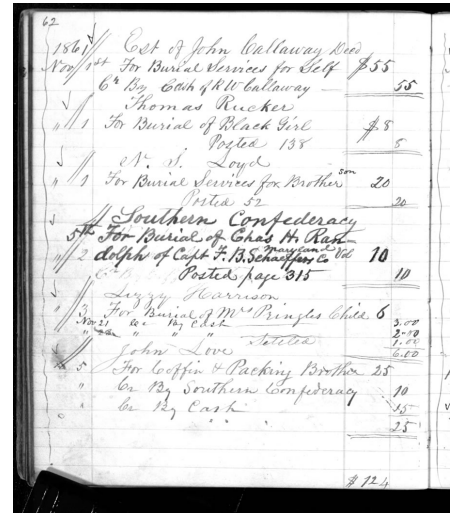 62
1861 Est of John Callaway Decd
Nov 1st For Burial Services for Self $55
Cr By Cash of R W Callaway — 55
Thomas Rucker
" 1 For Burial of Black Girl $8
Posted 138 8
N. S. Loyd
" 1 For Burial Services for Brother son 20
Posted 52 20
Southern Confederacy
5th For Burial of Chas H. Ran-
" 2 dolph of Capt F. B. Schaeffers Co Maryland Vol 10
Posted page 315 10
Lizzy Harrison
" 3 For Burial of Mrs Pringles Child 6
Nov 21 By Cash 3.00
" " " 2.00
Settled 1.00
6.00
John Love
" 5 For Coffin & Packing Brother 25
" Cr By Southern Confederacy 10
" Cr By Cash 15
" " 25
$124